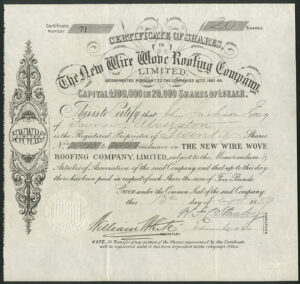 Certificate Number 71
20 SHARES.
CERTIFICATE OF SHARES,
IN
The New Wire Wove Roofing Company,
LIMITED.
INCORPORATED PURSUANT TO THE COMPANIES ACTS, 1862-86.
CAPITAL £100,000 IN 20,000 SHARES OF £5 EACH.
These is to Certify that Jackson Esq
of
is the Registered Proprietor of Twenty Shares
No to inclusive in THE NEW WIRE WOVE
ROOFING COMPANY, LIMITED, subject to the Memorandum &
Articles of Association of the said Company and that up to this day
there has been paid in respect of each Share the sum of Two Pounds
GIVEN under the Common Seal of the said Company
this 18
William White
NOTE, No Transfer of any portion of the Shares represented by this Certificate
will be registered, until it has been deposited at the Company's Office.